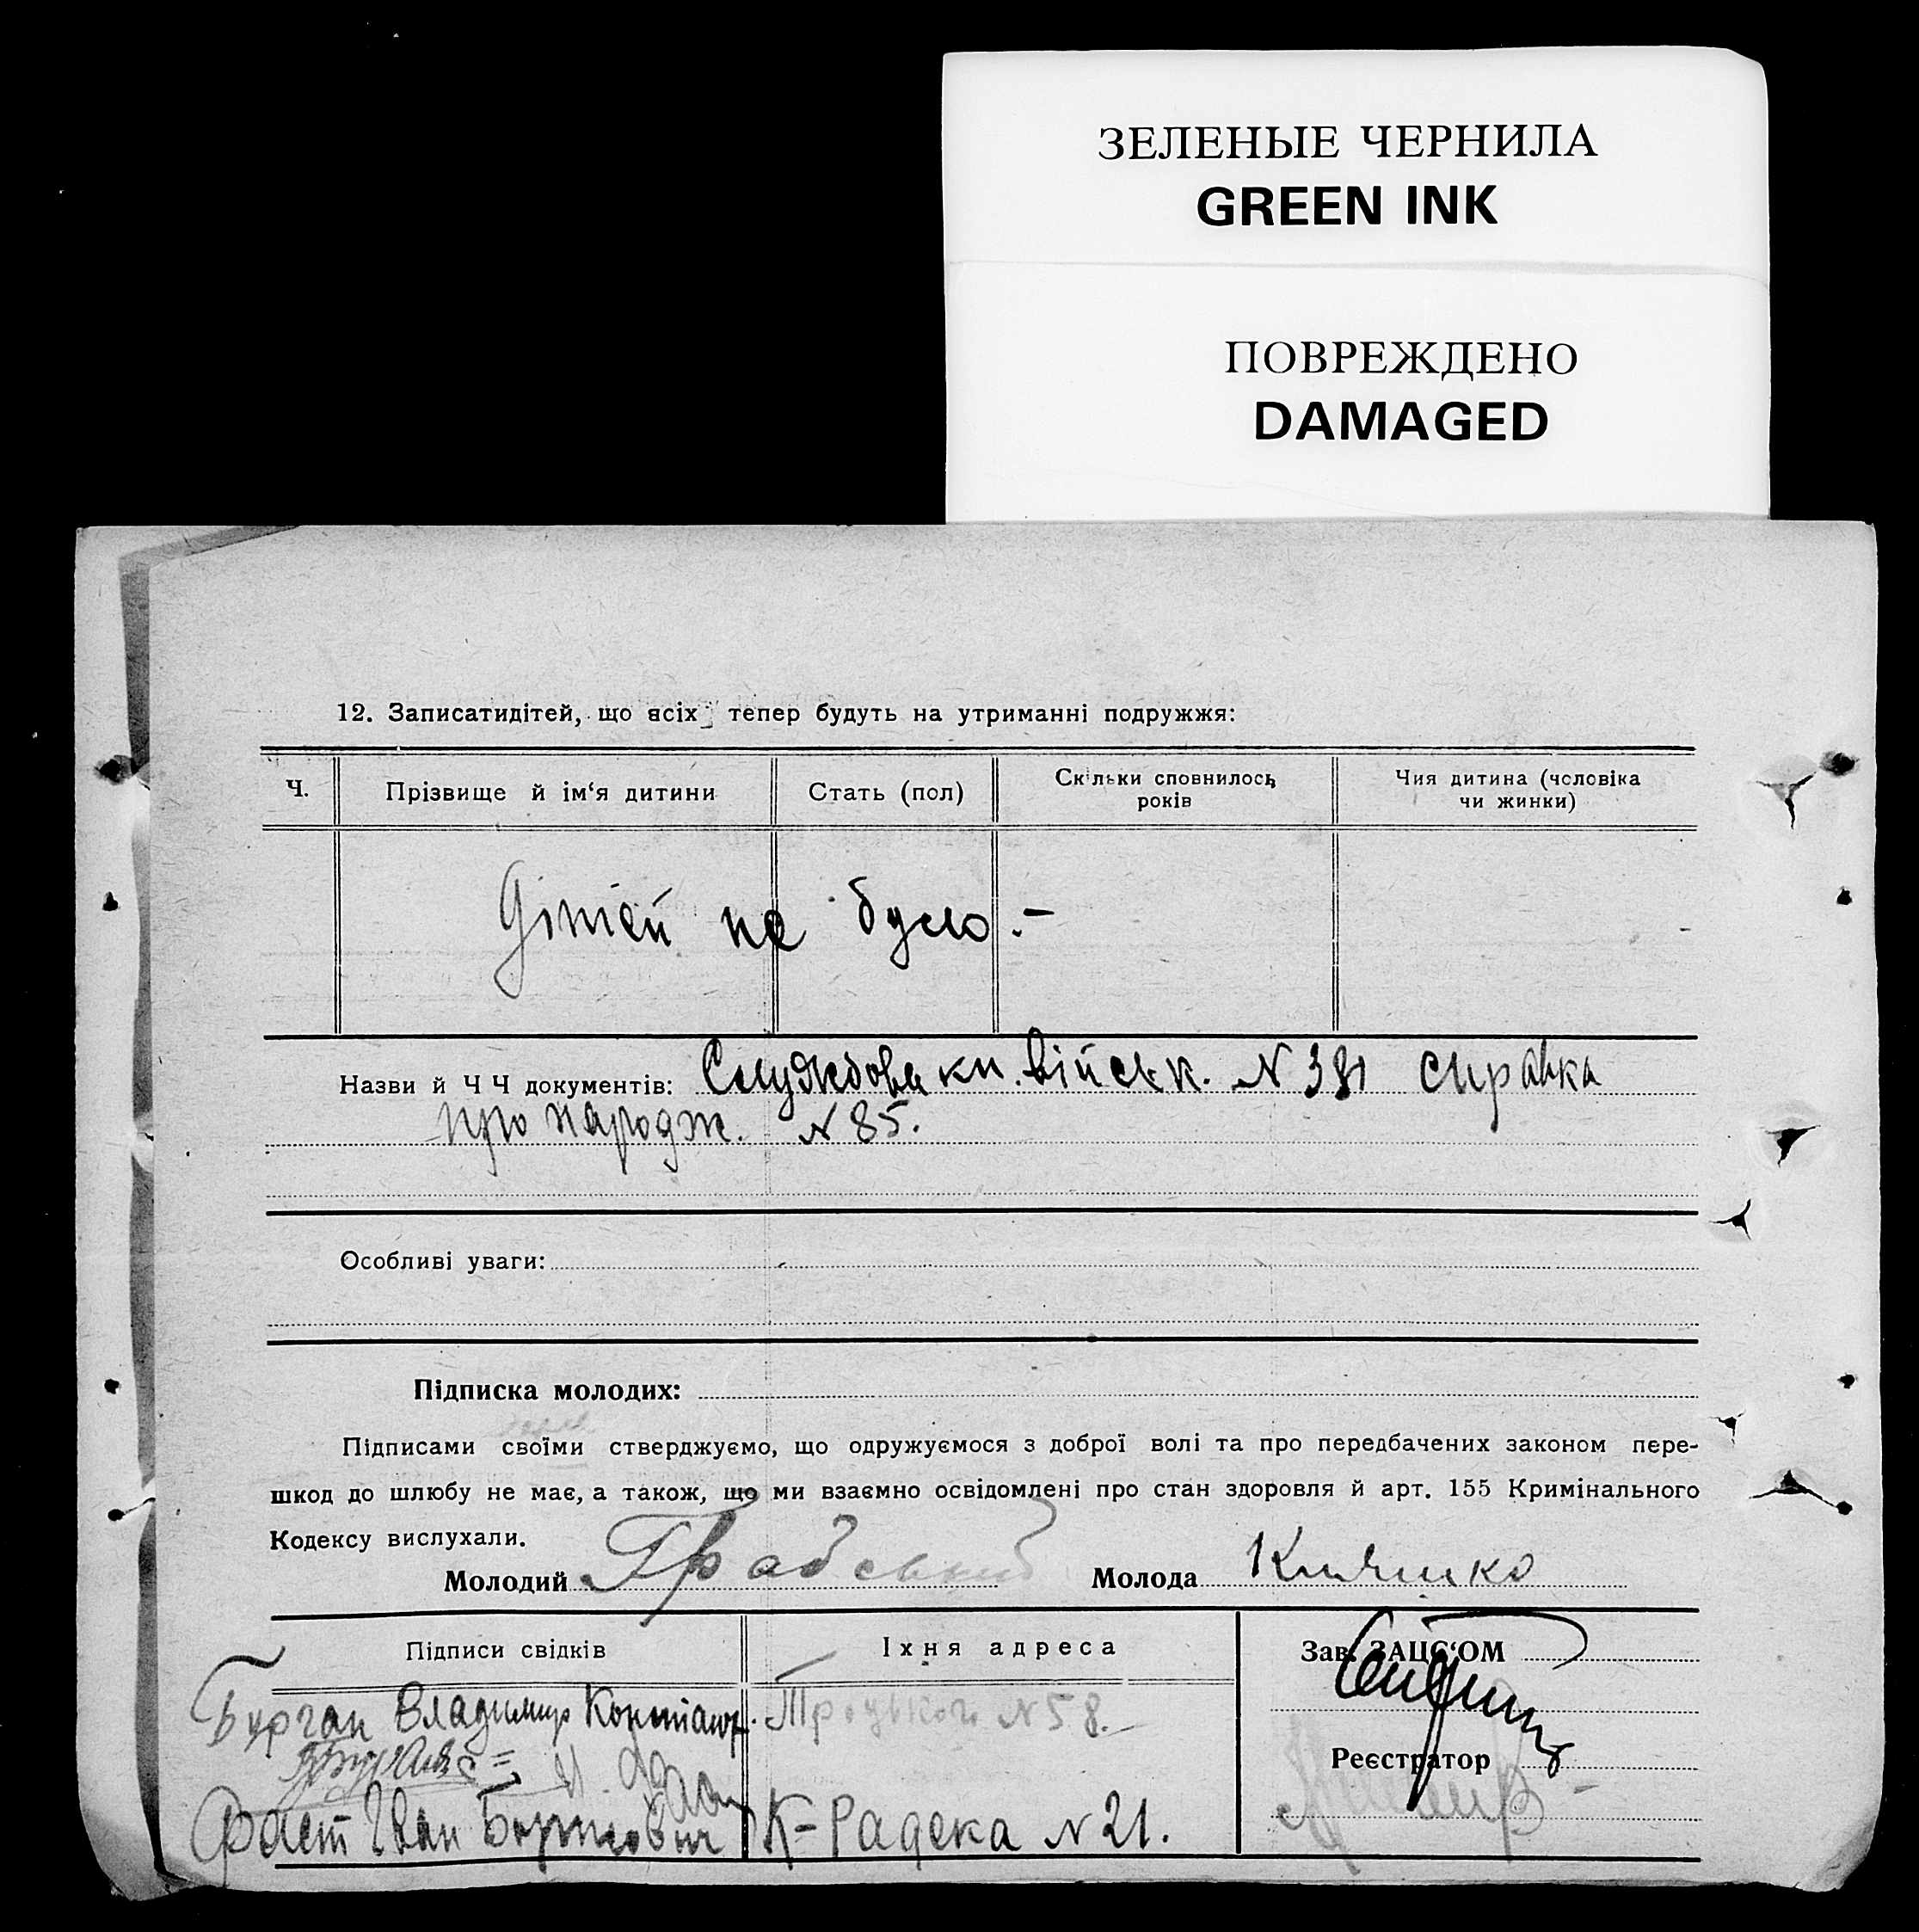 ЗЕЛЕНЫЕ ЧЕРНИЛА
GREEN INK
ПОВРЕЖДЕНО
DAMAGED
12. Записатидітей, що всіх тепер будуть на утриманні подружжя:
Ч. Прізвище й ім‘я дитини Стать (пол) Скільки сповнилось років Чия дитина (чоловіка чи жинки)
Дітей не було.-
Назви й Ч Ч документів: Службова кн. військ. N 381 справка
про народж. N 85.
Особливі уваги:
Підписка молодих:
Підписами своїми стверджуємо, що одружуємося з доброї волі та про передбачених законом пере-
шкод до шлюбу не має, а також, що ми взаємно освідомлені про стан здоровля й арт. 155 Кримінального
Кодексу вислухали.
Молодий Градський Молода Княшко
Підписи свідків Їхня адреса Зав. ЗАЦС‘ОМ
Бурган Владимир Троцького N 58.-
Реєстратор
Фаст Иван К-Радека N 21.